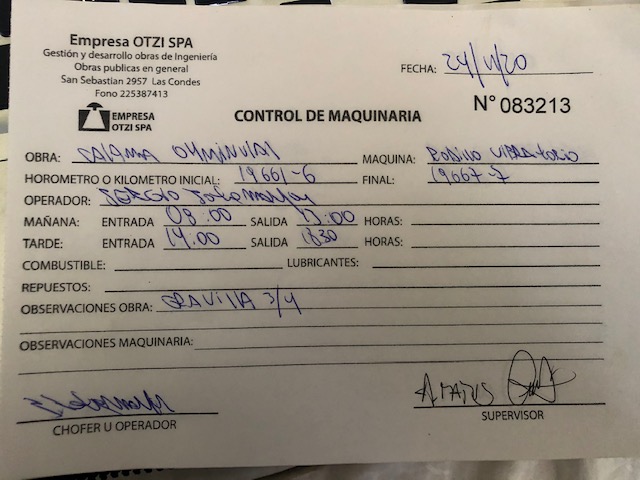 Empresa OTZI SPA
Gestión y desarrollo obras de Ingeniería
Obras publicas en general
San Sebastian 2957 Las Condes
Fono 225387413
EMPRESA
OTZI SPA
CONTROL DE MAQUINARIA
FECHA:
N° 083213
OBRA: MAQUINA: RODILLO VIBRATORIO
HOROMETRO O KILOMETRO INICIAL: 19661-6 FINAL: 19667-7
OPERADOR:
MAÑANA: ENTRADA 08:00 SALIDA 13:00 HORAS:
TARDE: ENTRADA 14:00 SALIDA HORAS:
COMBUSTIBLE: LUBRICANTES:
REPUESTOS:
OBSERVACIONES OBRA: GRAVILLA 3/4
OBSERVACIONES MAQUINARIA:
CHOFER U OPERADOR
SUPERVISOR